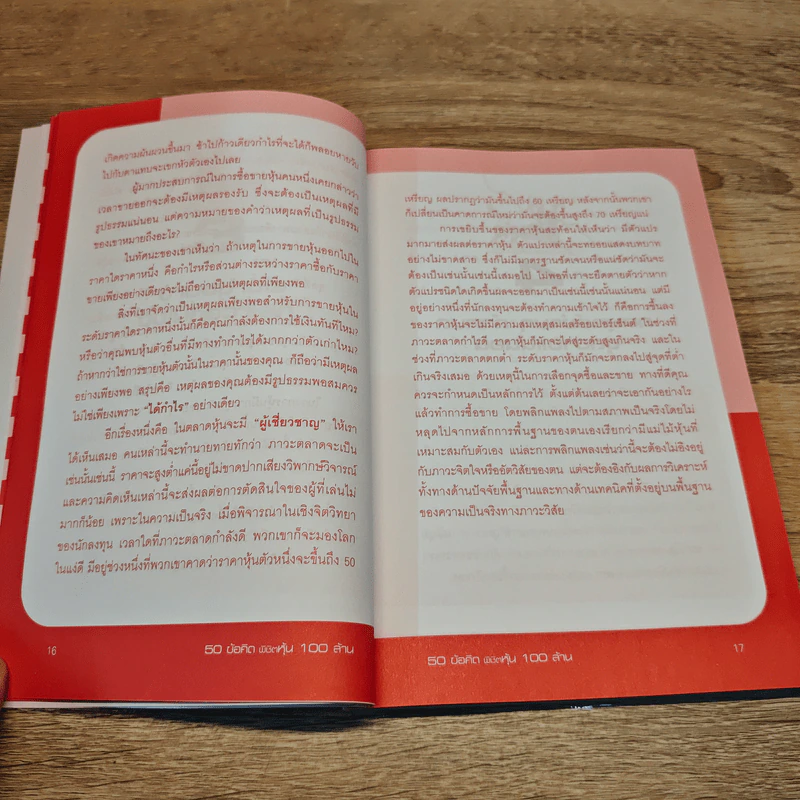 เกิดความผันผวนขึ้นมา ช้าไปก้าวเดียวกำไรที่จะได้ก็พลอยหายวับ
ไปกับตาแทบจะเขกหัวตัวเองไปเลย
ผู้มากประสบการณ์ในการซื้อขายหุ้นคนหนึ่งเคยกล่าวว่า
เวลาขายออกจะต้องมีเหตุผลรองรับ ซึ่งจะต้องเป็นเหตุผลที่มี
รูปธรรมแน่นอน แต่ความหมายของคำว่าเหตุผลที่เป็นรูปธรรม
ของเขาหมายถึงอะไร?
ในทัศนะของเขาเห็นว่า ถ้าเหตุในการขายหุ้นออกไปใน
ราคาใดราคาหนึ่ง คือกำไรหรือส่วนต่างระหว่างราคาซื้อกับราคา
ขายเพียงอย่างเดียวจะไม่ถือว่าเป็นเหตุผลที่เพียงพอ
สิ่งที่เขาจัดว่าเป็นเหตุผลเพียงพอสำหรับการขายหุ้นใน
ระดับราคาใดราคาหนึ่งนั้นก็คือคุณกำลังต้องการใช้เงินทันทีไหม?
หรือว่าคุณพบหุ้นตัวอื่นที่มีทางทำกำไรได้มากกว่าตัวเก่าไหม?
ถ้าหากว่าใช่การขายหุ้นตัวนั้นในราคานั้นของคุณ ก็ถือว่ามีเหตุผล
อย่างเพียงพอ สรุปคือ เหตุผลของคุณต้องมีรูปธรรมพอสมควร
ไม่ใช่เพียงเพราะ "ได้กำไร" อย่างเดียว
อีกเรื่องหนึ่งคือ ในตลาดหุ้นจะมี "ผู้เชี่ยวชาญ" ให้เรา
ได้เห็นเสมอ คนเหล่านี้จะทำนายทายทักว่า ภาวะตลาดจะเป็น
เช่นนั้นเช่นนี้ ราคาจะสูงต่ำแค่นี้อยู่ไม่ขาดปากเสียงวิพากษ์วิจารณ์
และความคิดเห็นเหล่านี้จะส่งผลต่อการตัดสินใจของผู้ที่เล่นไม่
มากก็น้อย เพราะในความเป็นจริง เมื่อพิจารณาในเชิงจิตวิทยา
ของนักลงทุน เวลาใดที่ภาวะตลาดกำลังดี พวกเขาก็จะมองโลก
ในแง่ดี มีอยู่ช่วงหนึ่งที่พวกเขาคาดว่าราคาหุ้นตัวหนึ่งจะขึ้นถึง 50
16
50 ข้อคิด พิชิตหุ้น 100 ล้าน
เหรียญ ผลปรากฏว่ามันขึ้นไปถึง 60 เหรียญ หลังจากนั้นพวกเขา
ก็เปลี่ยนเป็นคาดการณ์ใหม่ว่ามันจะต้องขึ้นสูงถึง 70 เหรียญแน่
การเขยิบขึ้นของราคาหุ้นสะท้อนให้เห็นว่า มีตัวแปร
มากมายส่งผลต่อราคาหุ้น ตัวแปรเหล่านี้จะทยอยแสดงบทบาท
อย่างไม่ขาดสาย ซึ่งก็ไม่มีมาตรฐานชัดเจนหรือแน่ชัดว่ามันจะ
ต้องเป็นเช่นนั้นเช่นนี้เสมอไป ไม่พอที่เราจะยึดตายตัวว่าหาก
ตัวแปรชนิดใดเกิดขึ้นผลจะออกมาเป็นเช่นนี้เช่นนั้นแน่นอน แต่มี
อยู่อย่างหนึ่งที่นักลงทุนจะต้องทำความเข้าใจไว้ ก็คือการขึ้นลง
ของราคาหุ้นจะไม่มีความสมเหตุสมผลร้อยเปอร์เซ็นต์ ในช่วงที่
ภาวะตลาดกำไรดี ราคาหุ้นก็มักจะไต่สู่ระดับสูงเกินจริง และใน
ช่วงที่ภาวะตลาดตกต่ำ ระดับราคาหุ้นก็มักจะตกลงไปสู่จุดที่ต่ำ
เกินจริงเสมอ ด้วยเหตุนี้ในการเลือกจุดซื้อและขาย ทางที่ดีคุณ
ควรจะกำหนดเป็นหลักการไว้ ตั้งแต่ต้นเลยว่าจะเอากันอย่างไร
แล้วทำการซื้อขาย โดยพลิกแพลงไปตามสภาพเป็นจริงโดยไม่
หลุดไปจากหลักการพื้นฐานของตนเองเรียกว่ามีแม่ไม้หุ้นที่
เหมาะสมกับตัวเอง แน่ละการพลิกแพลงเช่นว่านี้จะต้องไม่อิงอยู่
กับภาวะจิตใจหรืออัตวิสัยของตน แต่จะต้องอิงกับผลการวิเคราะห์
ทั้งทางด้านปัจจัยพื้นฐานและทางด้านเทคนิคที่ตั้งอยู่บนพื้นฐาน
ของความเป็นจริงทางภาวะวิสัย
50 ข้อคิด พิชิตหุ้น 100 ล้าน
17